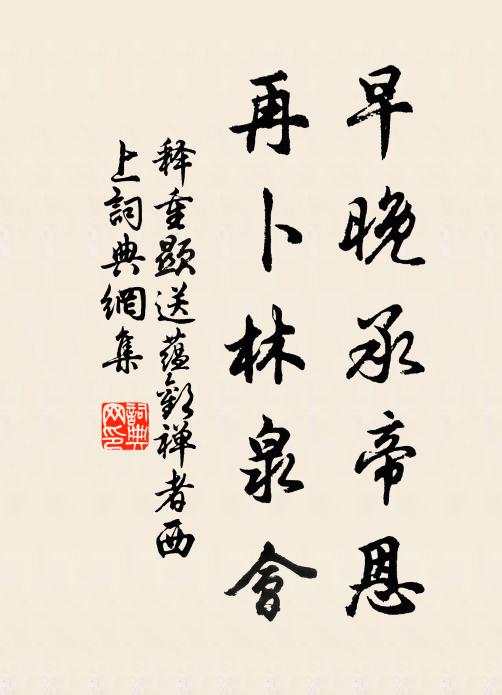 早晚承帝恩
再卜林泉會
释重顯送蕴歡禅者西
上詞典網集
詞典
网印